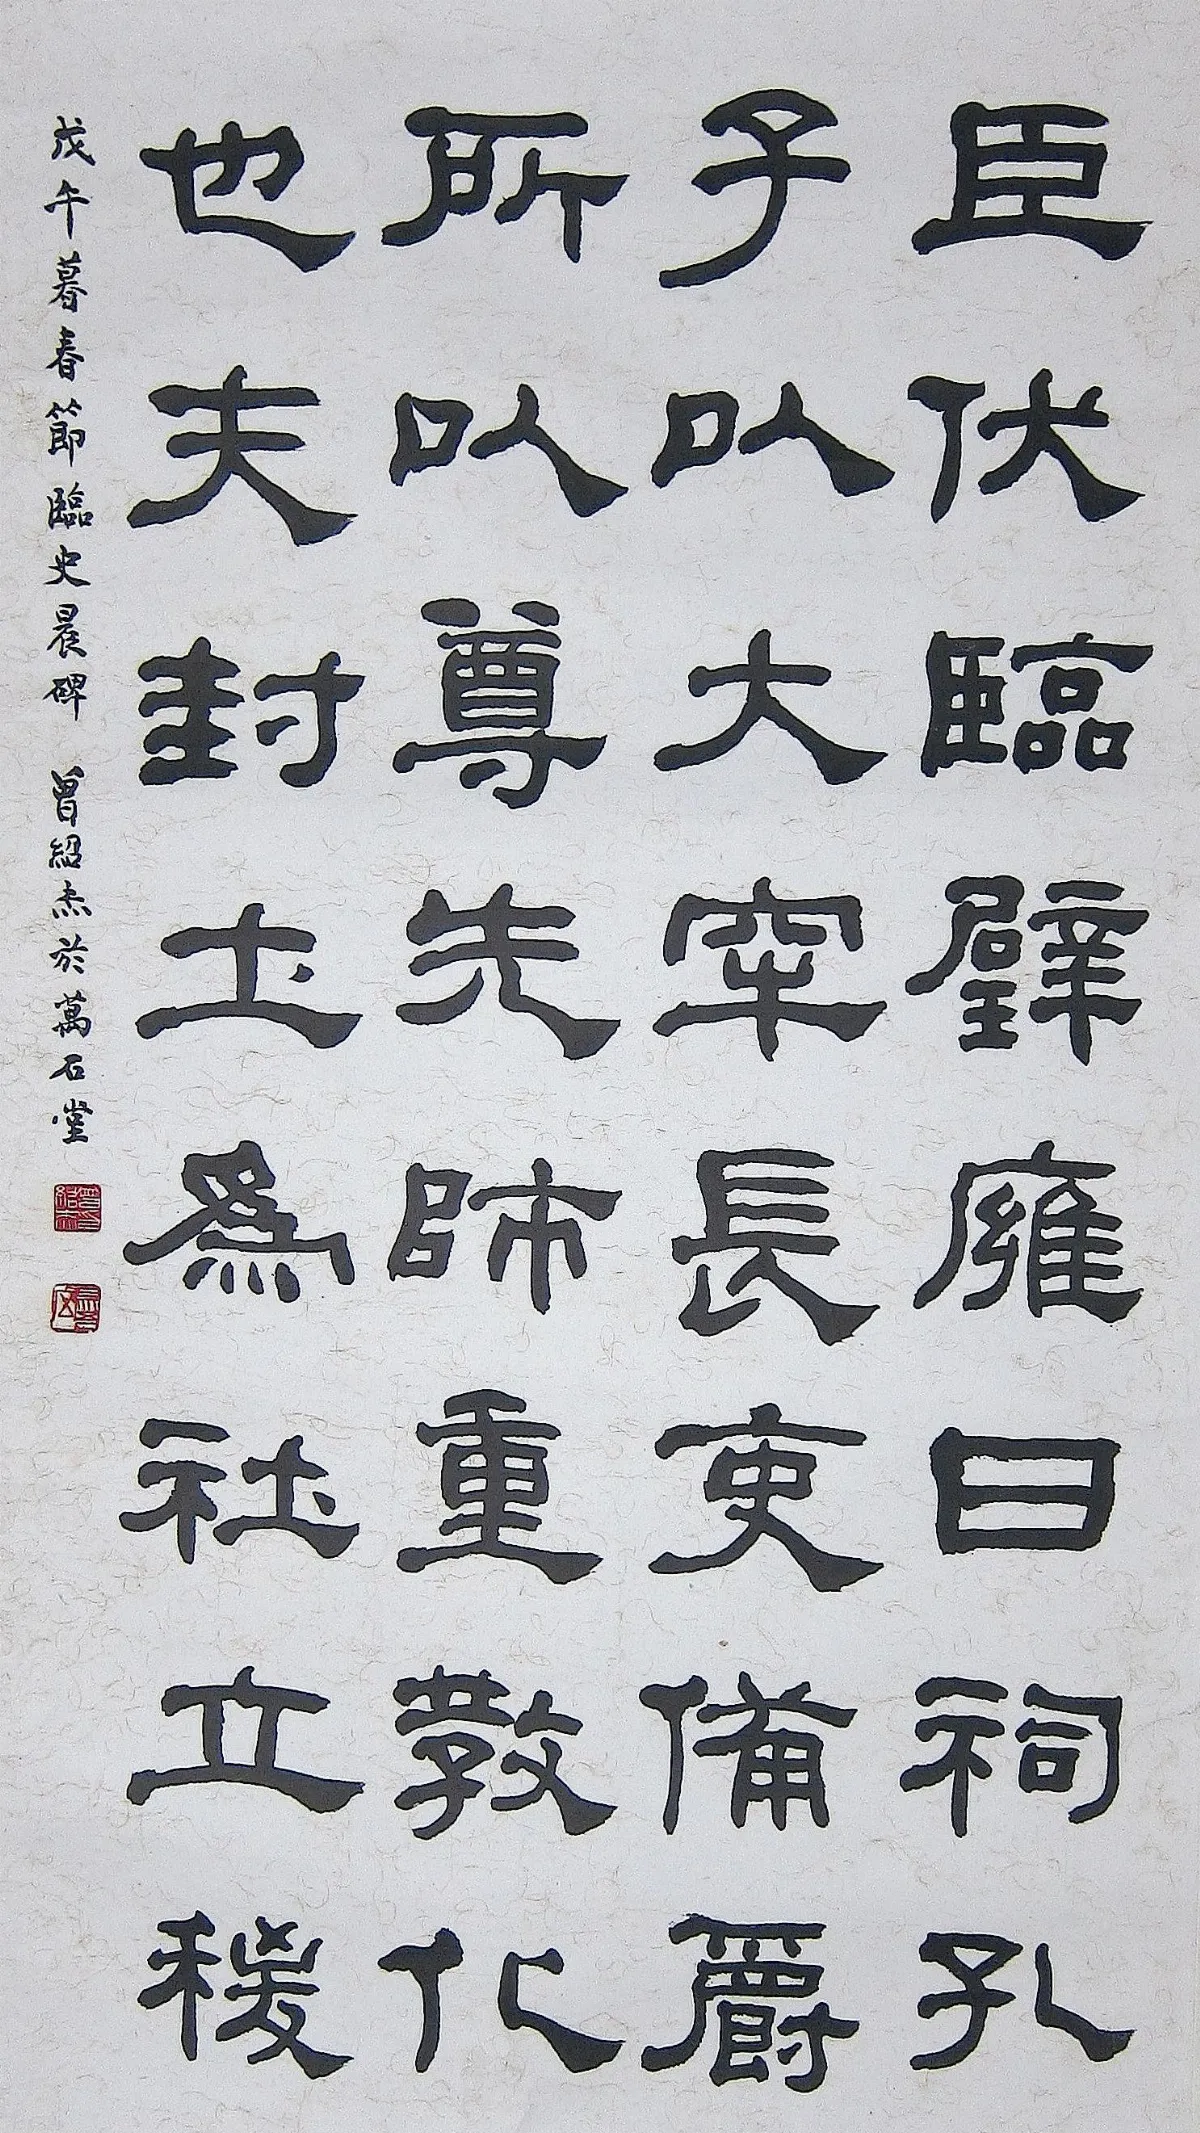 臣伏臨璧雍日祠孔
子以大牢長吏備爵
所以尊先師重教化
也夫封土為社立稷
戊午暮春節臨史晨碑 曾紹杰於萬石堂